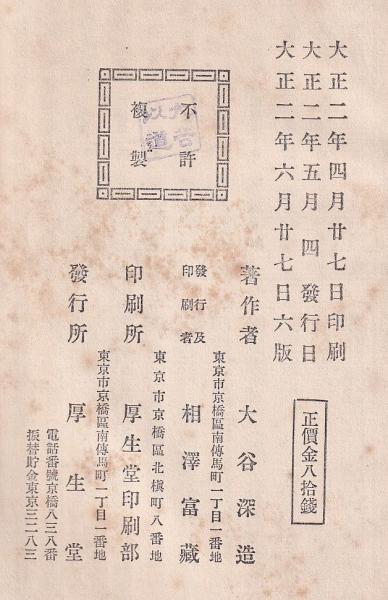 大正二年四月廿七日印刷
大正二年五月四日發行
大正二年六月廿七日六版
正價金八拾錢
不許
複製
東京市京橋區南傳馬町一丁目一番地
著作者 大谷深造
東京市京橋區北槇町八番地
發行及印刷者 相澤富藏
東京市京橋區南傳馬町一丁目一番地
印刷所 厚生堂印刷部
發行所 厚生堂
電話番號京橋八三八番
振替貯金東京三二八三